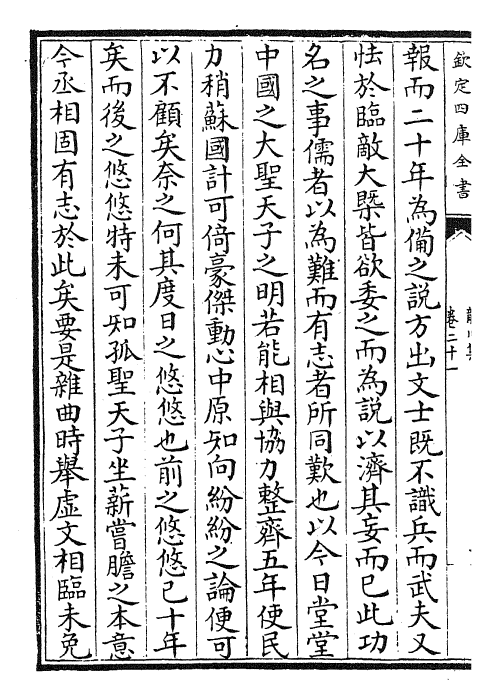 欽定四庫全書
卷二十一
報而二十年為備之說方出文士既不識兵而武夫又
怯於臨敵大槩皆欲委之而為說以濟其妄而已此功
名之事儒者以為難而有志者所同歎也以今日堂堂
中國之大聖天子之明若能相與協力整齊五年使民
力稍蘇國計可倚豪傑動心中原知向紛紛之論便可
以不顧矣奈之何其度日之悠悠也前之悠悠已十年
矣而後之悠悠特未可知孤聖天子坐薪嘗膽之本意
今丞相固有志於此矣要是雜曲時舉虛文相臨未免